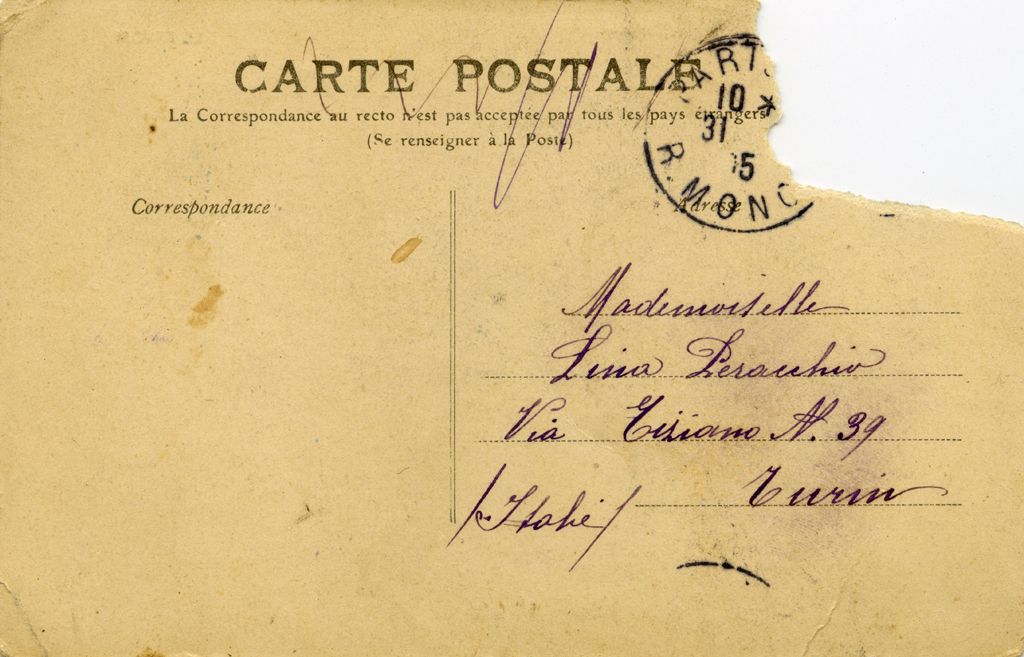 CARTE POSTALE
La Correspondance au recto n'est pas acceptée par tous les pays étrangers
(Se renseigner à la Poste)
10 *
31
15
R. MONC
Correspondance
Adresse
Mademoiselle
Lina Peracchio
Via Tiziano N. 39
Turin
(Italie)